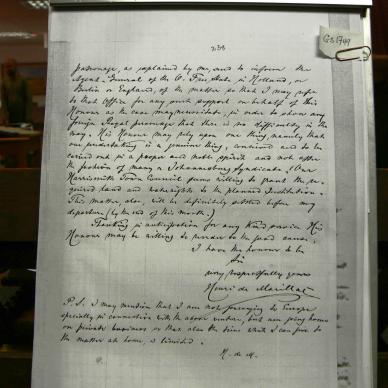 GS1749
238
patronage, as explained by me, and to inform the
Agent-General of the O. Free State in Holland, or
Berlin or England, of the matter so that I may refer
to that Office for any such support on behalf of this
Honour as the case may necessitate, in order to show any
foreign Royal personage that there is no difficulty in the
way. His Honour may rely upon one thing namely that
our undertaking is a genuine thing, conceived and to be
carried out in a proper and noble spirit and not after
the fashion of many a Johannesburg Syndicate. (Our
Harrismith Town Council quite willing to grant the re-
quired land and water rights to the planned Institution.
This matter, also, will be definitely settled before my
departure (by the end of this month.)
Thanking in anticipation for any kind service His
Honour may be willing to render to the good cause,
I have the honour to be
Sir
very respectfully yours
Henri de Marillac
P.S. I may mention that I am not journeying to Europe
specially in connection with the above venture, but am going home
on private business so that also the time which I can give to
the matter at home, is limited.
H. de M.